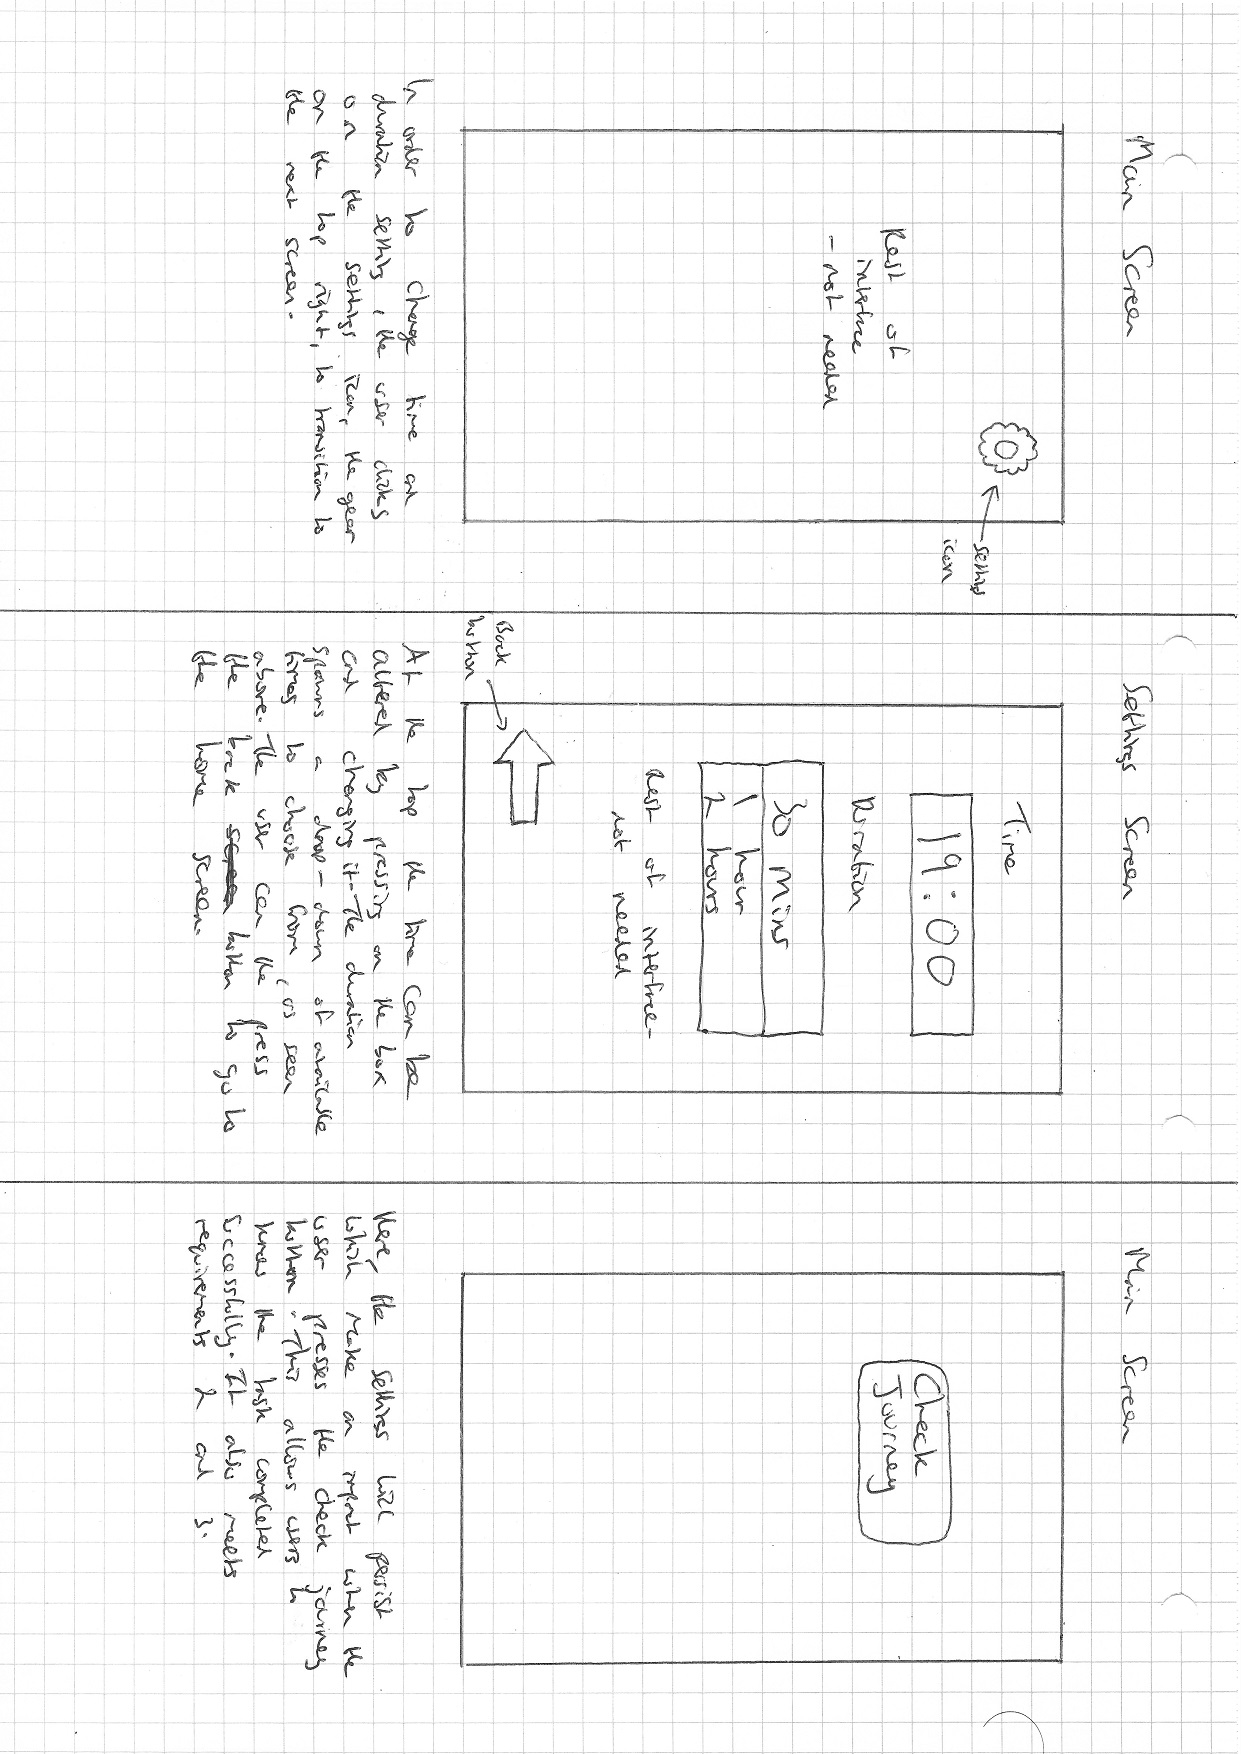 Main Screen
Rest of
interface
- not needed
settings
icon
In order to change time and
duration settings, the user clicks
on the settings icon, the gear
on the top right, to transition to
the next screen.
Settings Screen
Time
19:00
Duration
30 Mins
1 hour
2 hours
Rest of interface -
not needed
Back
button
At the top the time can be
altered by pressing on the box
and changing it. The duration
spawns a drop-down of available
times to choose from, as seen
above. The user can the press
the back screen button to go to
the home screen.
Main Screen
Check
Journey
Here, the settings will persist
which make an impact when the
user presses the check journey
button. This allows users to
know the task completed
successfully. It also meets
requirements 2 and 3.